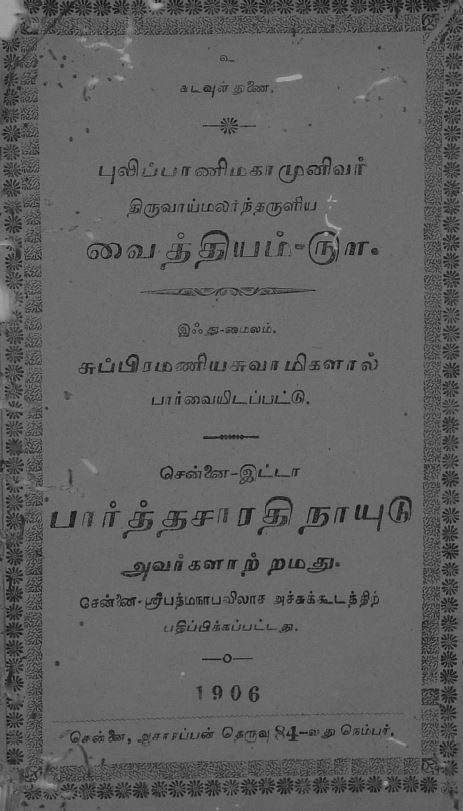 உ
கடவுள் துணை.
புலிப்பாணிமகாமுனிவர்
திருவாய்மலர்ந்தருளிய
வைத்தியம்-
இஃது-மைலம்.
சுப்பிரமணியசுவாமிகளால்
பார்வையிடப்பட்டு.
சென்னை-இட்டா
பார்த்தசாரதி நாயுடு
அவர்களாற் றமது.
சென்னை-ஸ்ரீபத்மநாபவிலாச அச்சுக்கூடத்திற்
பதிப்பிக்கப்பட்டது.
1906
சென்னை, தெருவு 84-வது நெம்பர்.